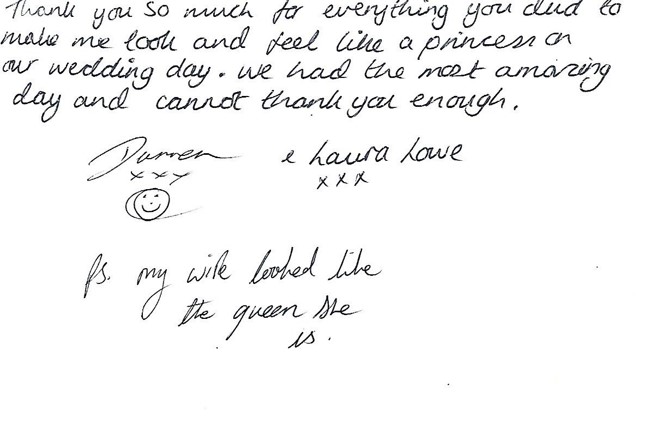 Thank you so much for everything you did to
make me look and feel like a princess on
our wedding day. We had the most amazing
day and cannot thank you enough.
Darren & Laura Lowe
xxx xxx
Ps. my wife looked like
the queen she
is.